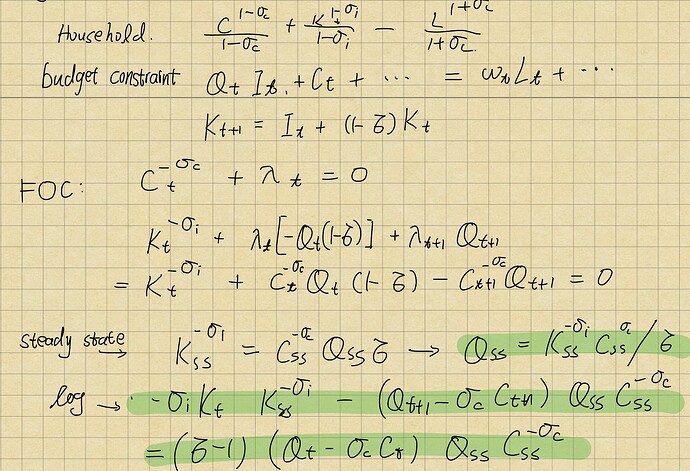 Household. C^{1-σ_c}/1-σ_c + K^{1-σ_i}/1-σ_i − L^{1+σ_c}/1+σ_c
budget constraint Q_t I_t + C_t + ··· = w_t L_t + ···
K_{t+1} = I_t + (1-δ) K_t
FOC: C_t^{-σ_c} + λ_t = 0
K_t^{-σ_i} + λ_t[-Q_t(1-δ)] + λ_{t+1} Q_{t+1}
= K_t^{-σ_i} + C_t^{-σ_c} Q_t (1-δ) − C_{t+1}^{-σ_c} Q_{t+1} = 0
steady state → K_{ss}^{-σ_i} = C_{ss}^{-σ_c} Q_{ss} δ → Q_{ss} = K_{ss}^{-σ_i} C_{ss}^{σ_c} / δ
log → -σ_i K_t K_{ss}^{-σ_i} − (Q_{t+1} - σ_c C_{t+1}) Q_{ss} C_{ss}^{-σ_c}
= (δ-1) (Q_t - σ_c C_t) Q_{ss} C_{ss}^{-σ_c}